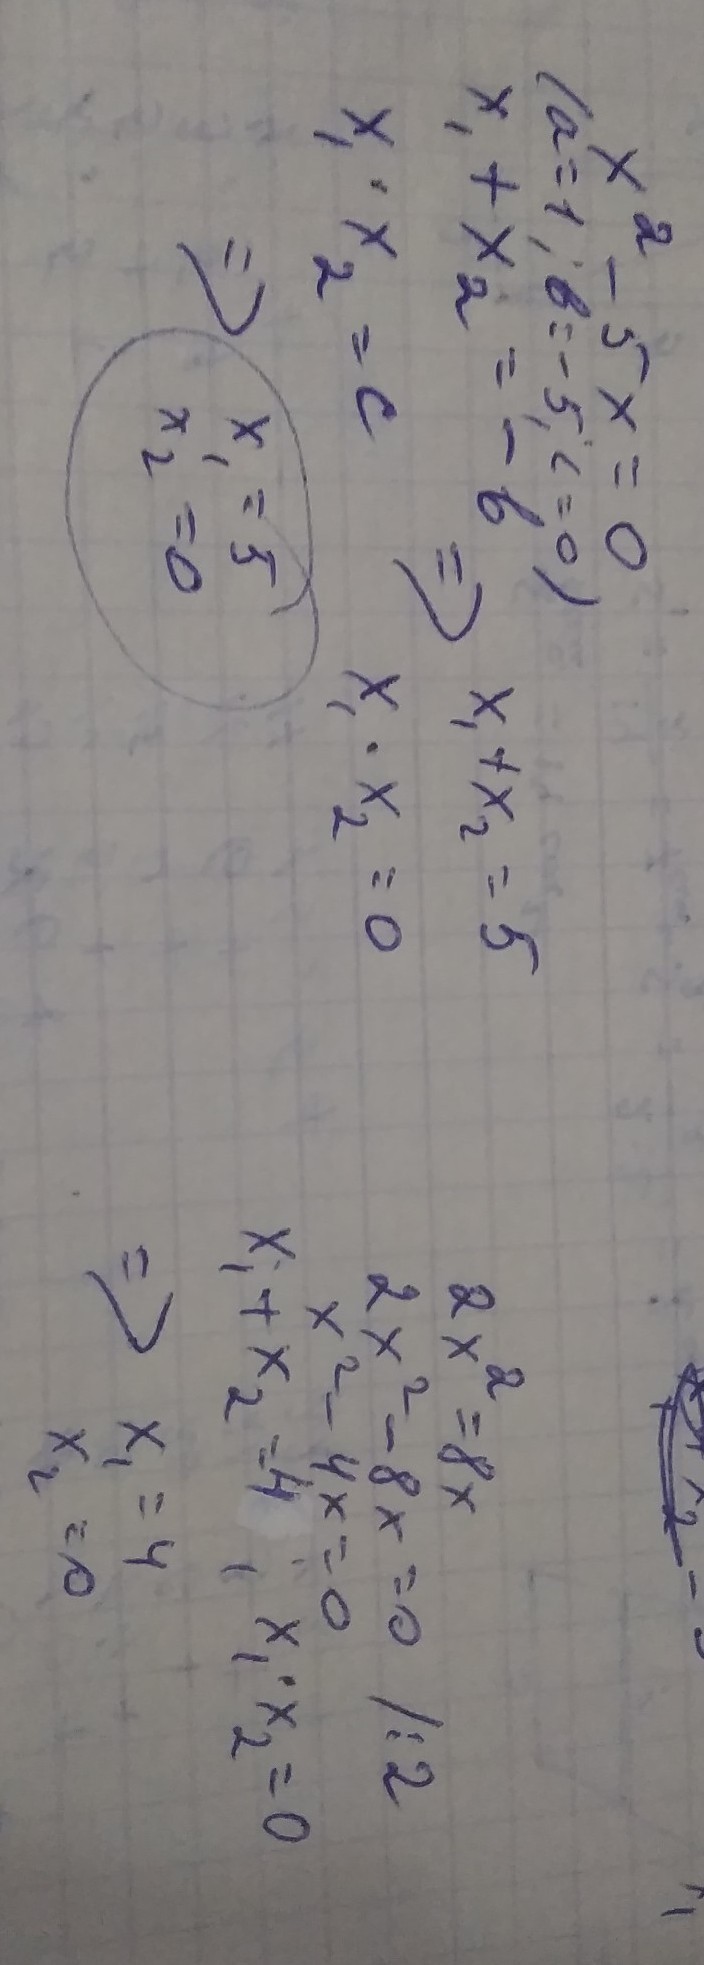 x² - 5x = 0
(a = 1, b = -5, c = 0)
x₁ + x₂ = -b
x₁ · x₂ = c
=> x₁ + x₂ = 5
x₁ · x₂ = 0
=> x₁ = 5
x₂ = 0
2x² = 8x
2x² - 8x = 0 /:2
x² - 4x = 0
x₁ + x₂ = 4, x₁ · x₂ = 0
=> x₁ = 4
x₂ = 0